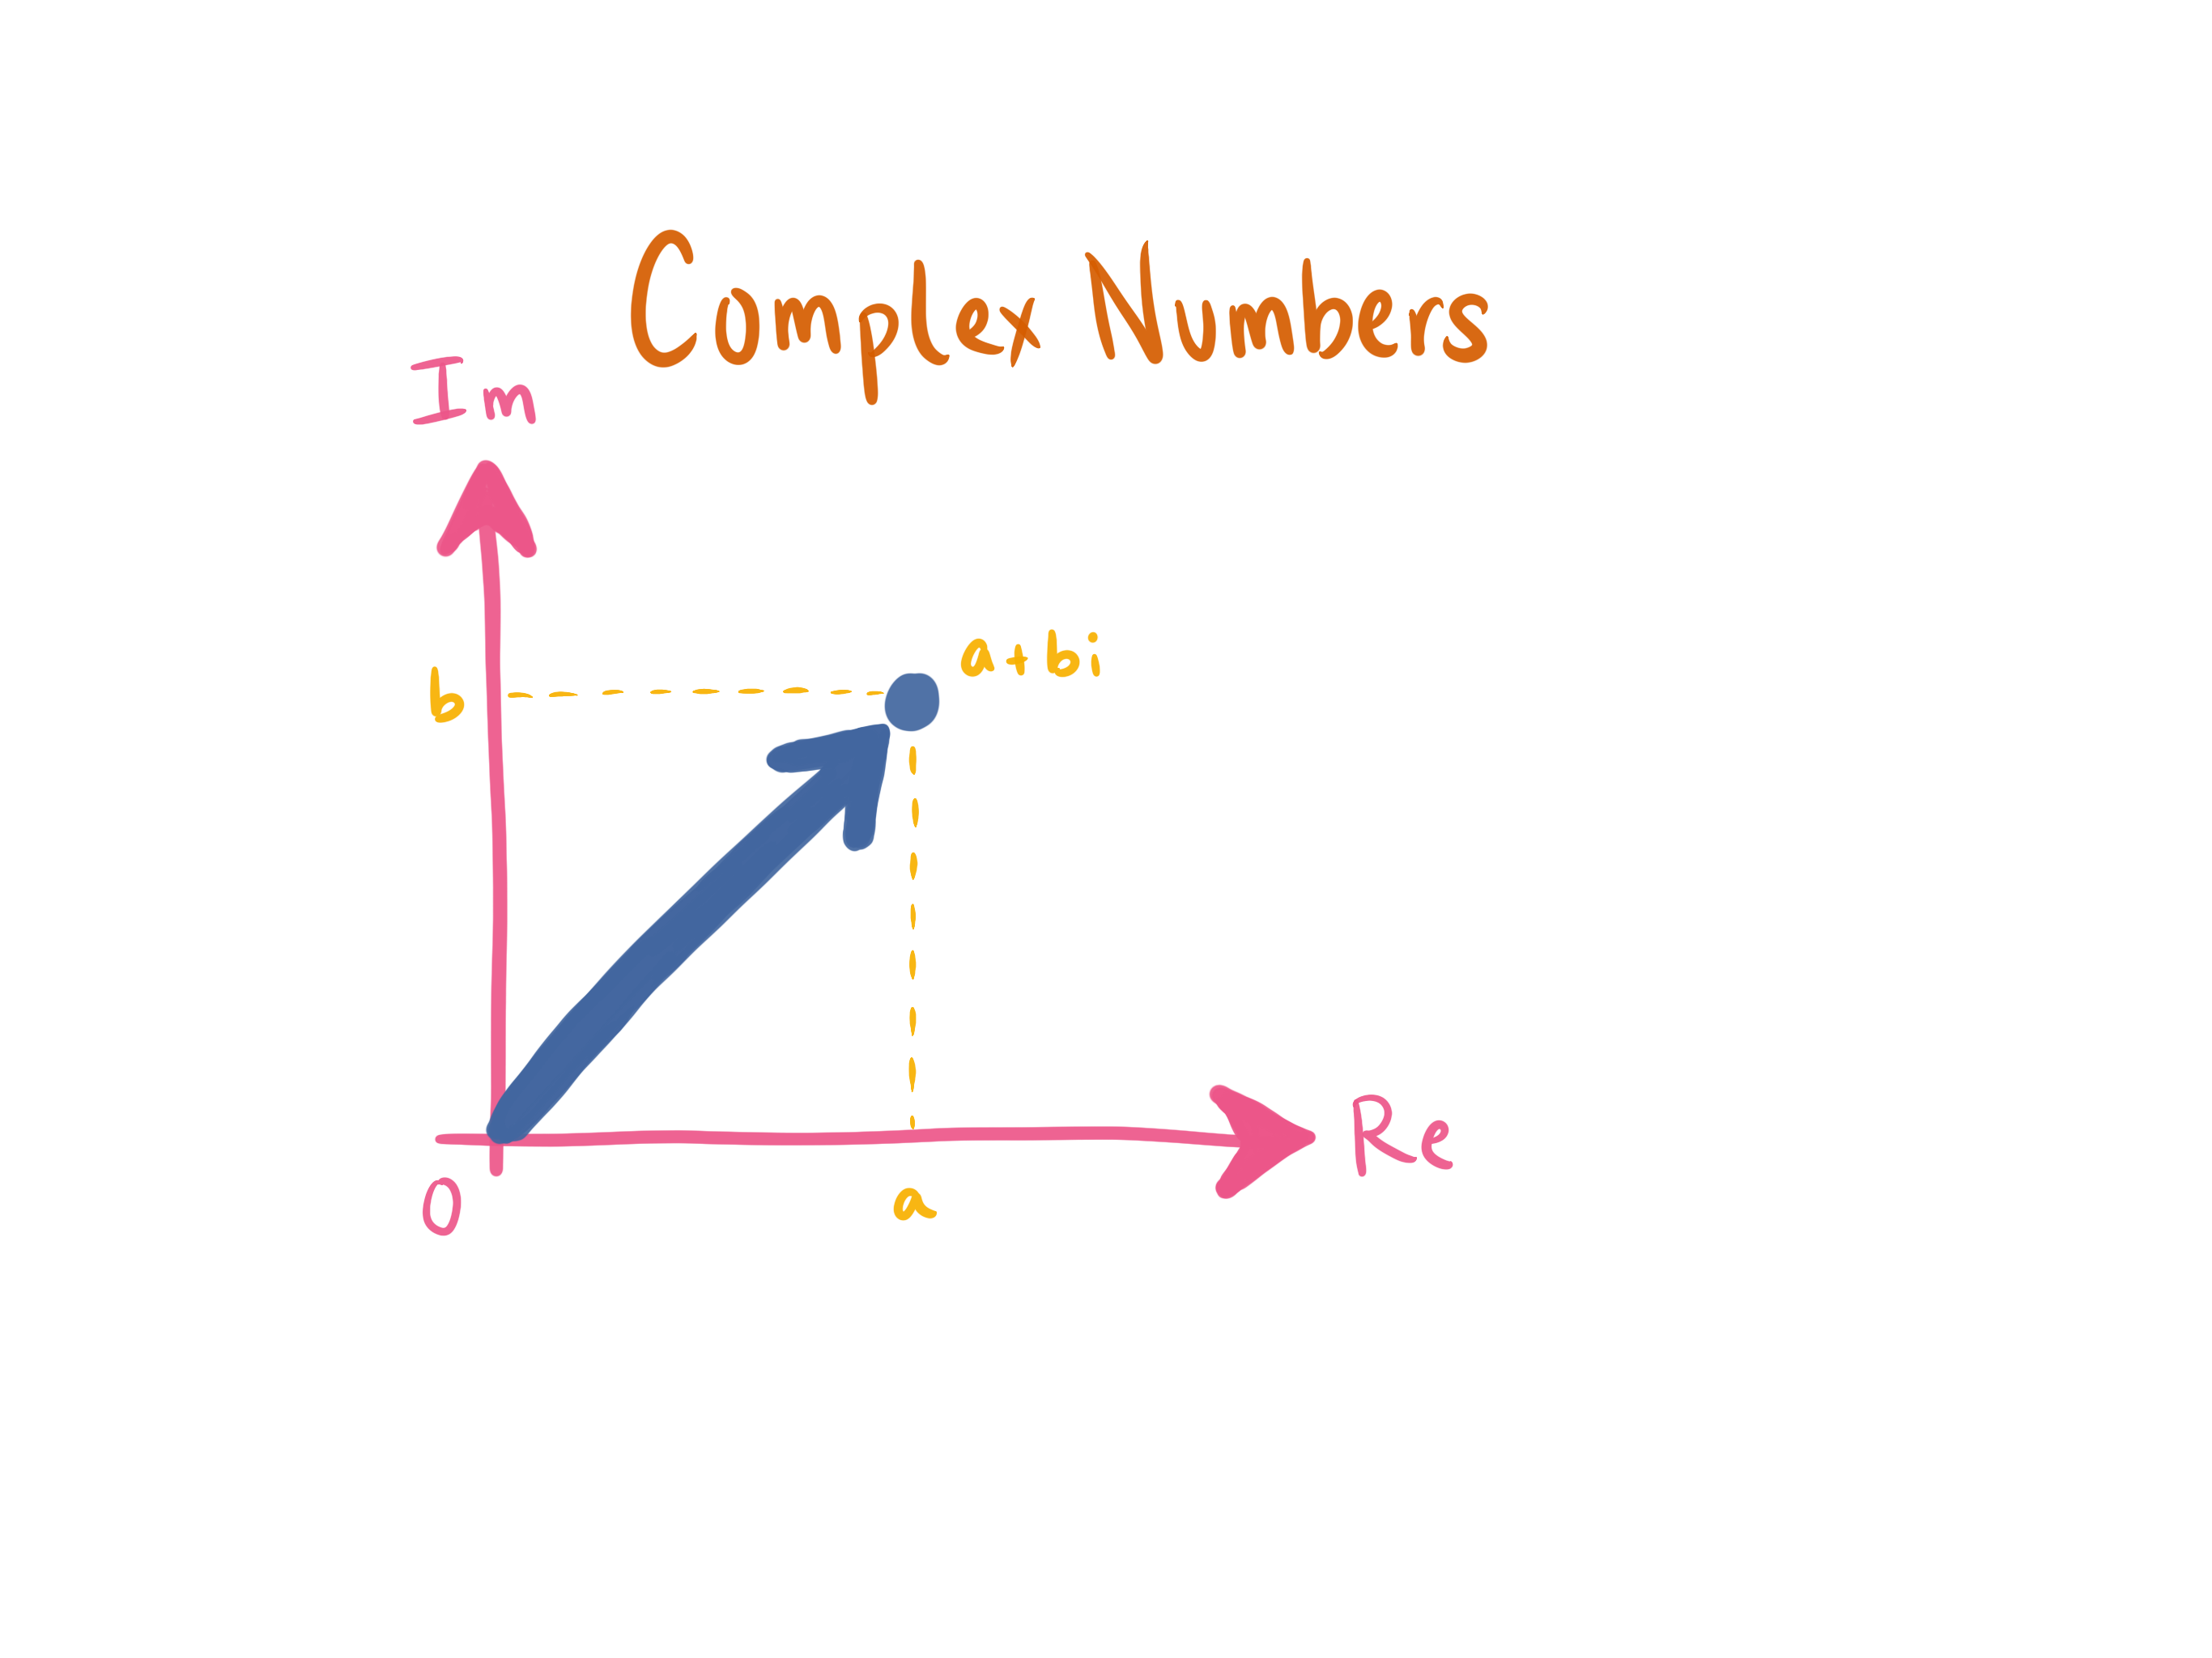 Complex Numbers
Im
b
a+bi
Re
0
a